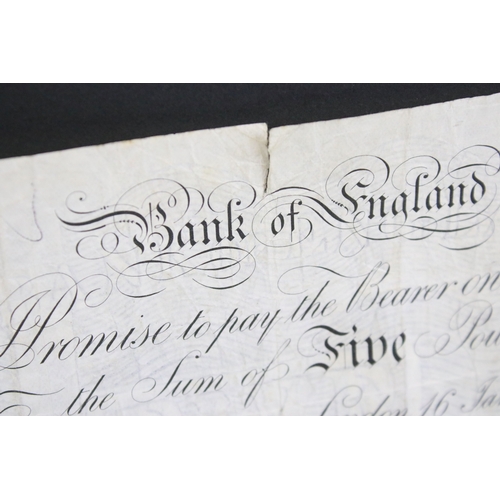 Bank of England
I Promise to pay the Bearer on
the Sum of Five Pou
London 16 Ja